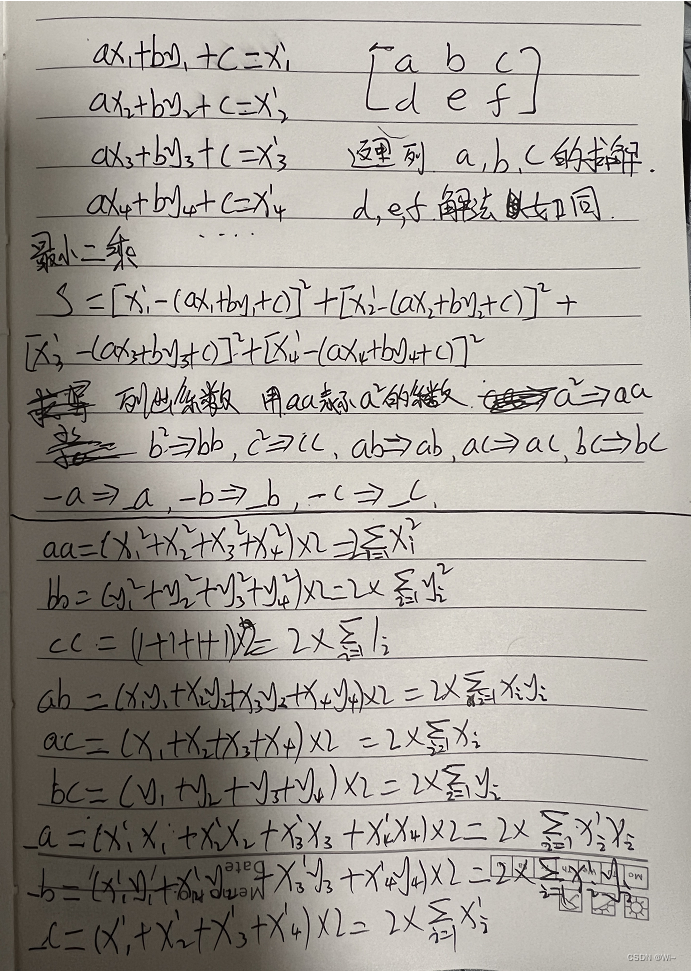 ax₁+by₁+c=x₁' [a b c
ax₂+by₂+c=x₂' d e f]
ax₃+by₃+c=x₃' 这里列 a,b,c的求解.
ax₄+by₄+c=x₄' d,e,f 解法如同.
....
最小二乘
S=[x₁'-(ax₁+by₁+c)]²+[x₂'-(ax₂+by₂+c)]²+
[x₃'-(ax₃+by₃+c)]²+[x₄'-(ax₄+by₄+c)]²
列出系数 用aa表示a²的系数. a²⇒aa
b²⇒bb, c²⇒cc, ab⇒ab, ac⇒ac, bc⇒bc
-a⇒_a, -b⇒_b, -c⇒_c.
aa=(x₁²+x₂²+x₃²+x₄²)×2=2∑ᵢ₌₁xᵢ²
bb=(y₁²+y₂²+y₃²+y₄²)×2=2×∑ᵢ₌₁yᵢ²
cc=(1+1+1+1)×2=2×∑ᵢ₌₁1ᵢ
ab=(x₁y₁+x₂y₂+x₃y₃+x₄y₄)×2=2×∑ᵢ₌₁xᵢyᵢ
ac=(x₁+x₂+x₃+x₄)×2=2×∑ᵢ₌₁xᵢ
bc=(y₁+y₂+y₃+y₄)×2=2×∑ᵢ₌₁yᵢ
_a=(x₁'x₁+x₂'x₂+x₃'x₃+x₄'x₄)×2=2×∑ᵢ₌₁xᵢ'xᵢ
_b=(x₁'y₁+x₂'y₂+x₃'y₃+x₄'y₄)×2=2×∑ᵢ₌₁xᵢ'yᵢ
Date
Memo No.
Mo
_c=(x₁'+x₂'+x₃'+x₄')×2=2×∑ᵢ₌₁xᵢ'
CSDN @Wi~